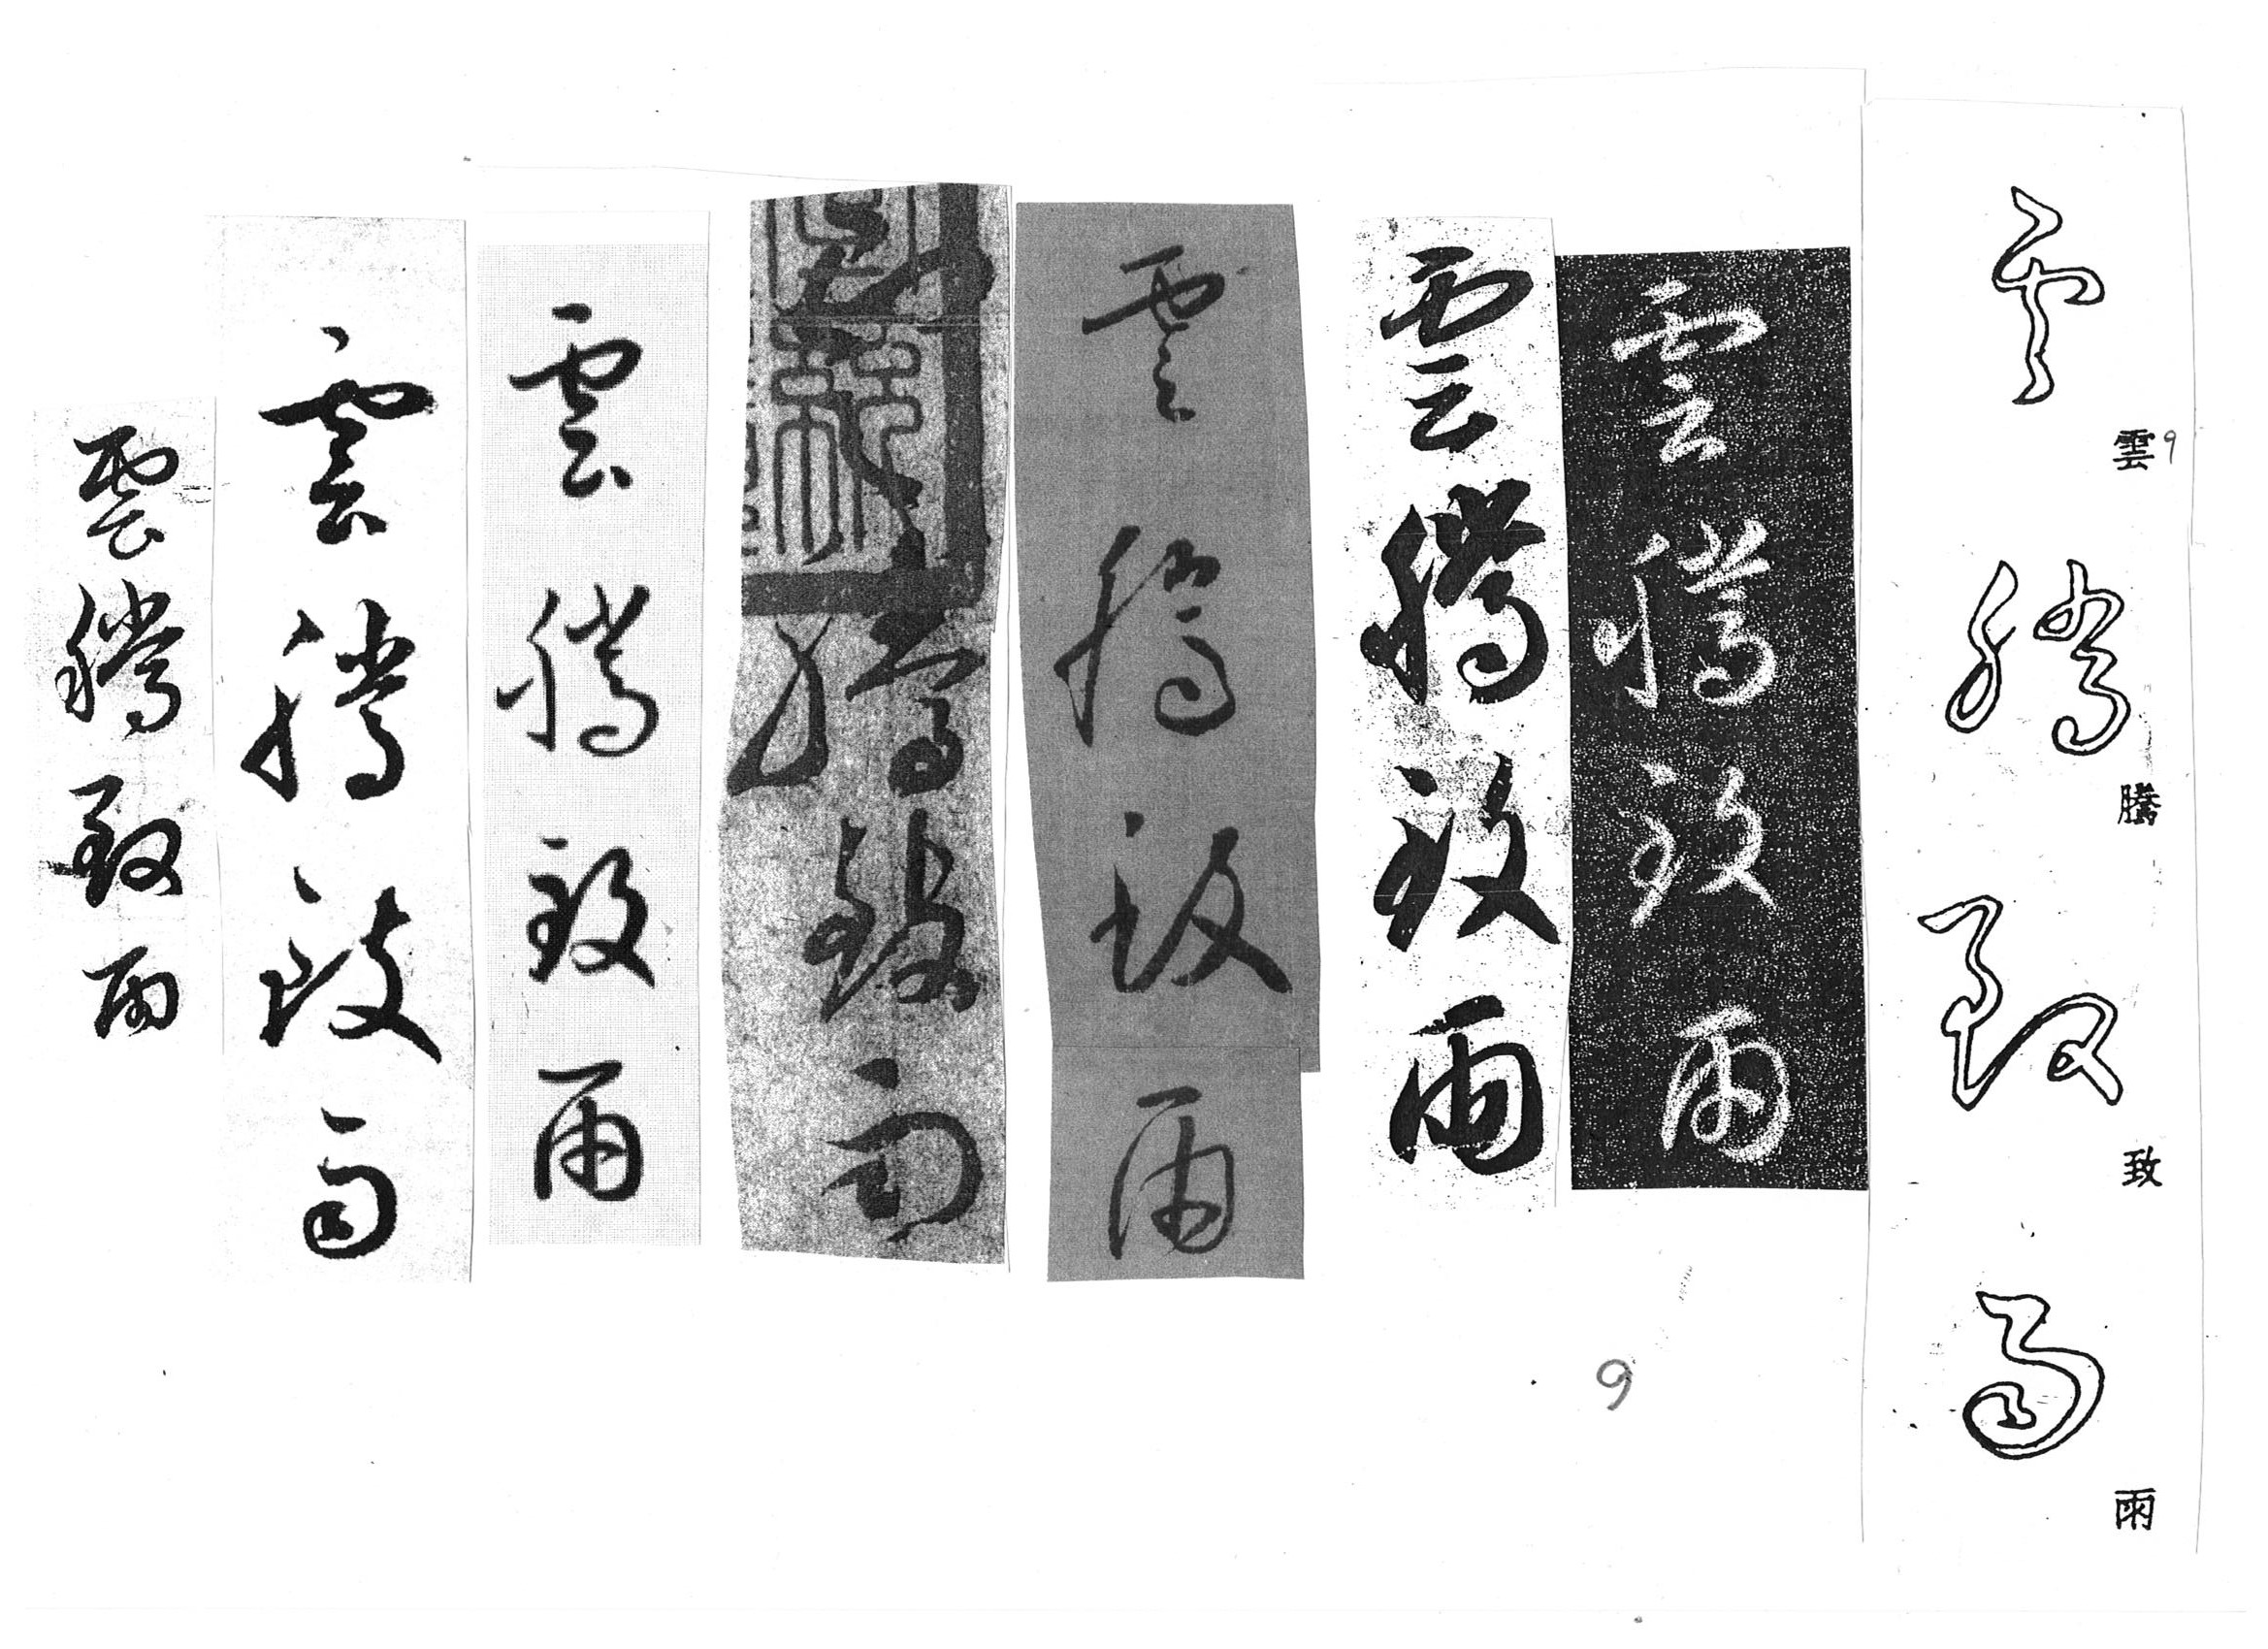 雲騰致雨
9
雲
騰
致
雨
雲騰致雨
9
雲騰致雨
雲騰致雨
騰致雨
雲騰致雨
雲騰致雨
雲騰致雨